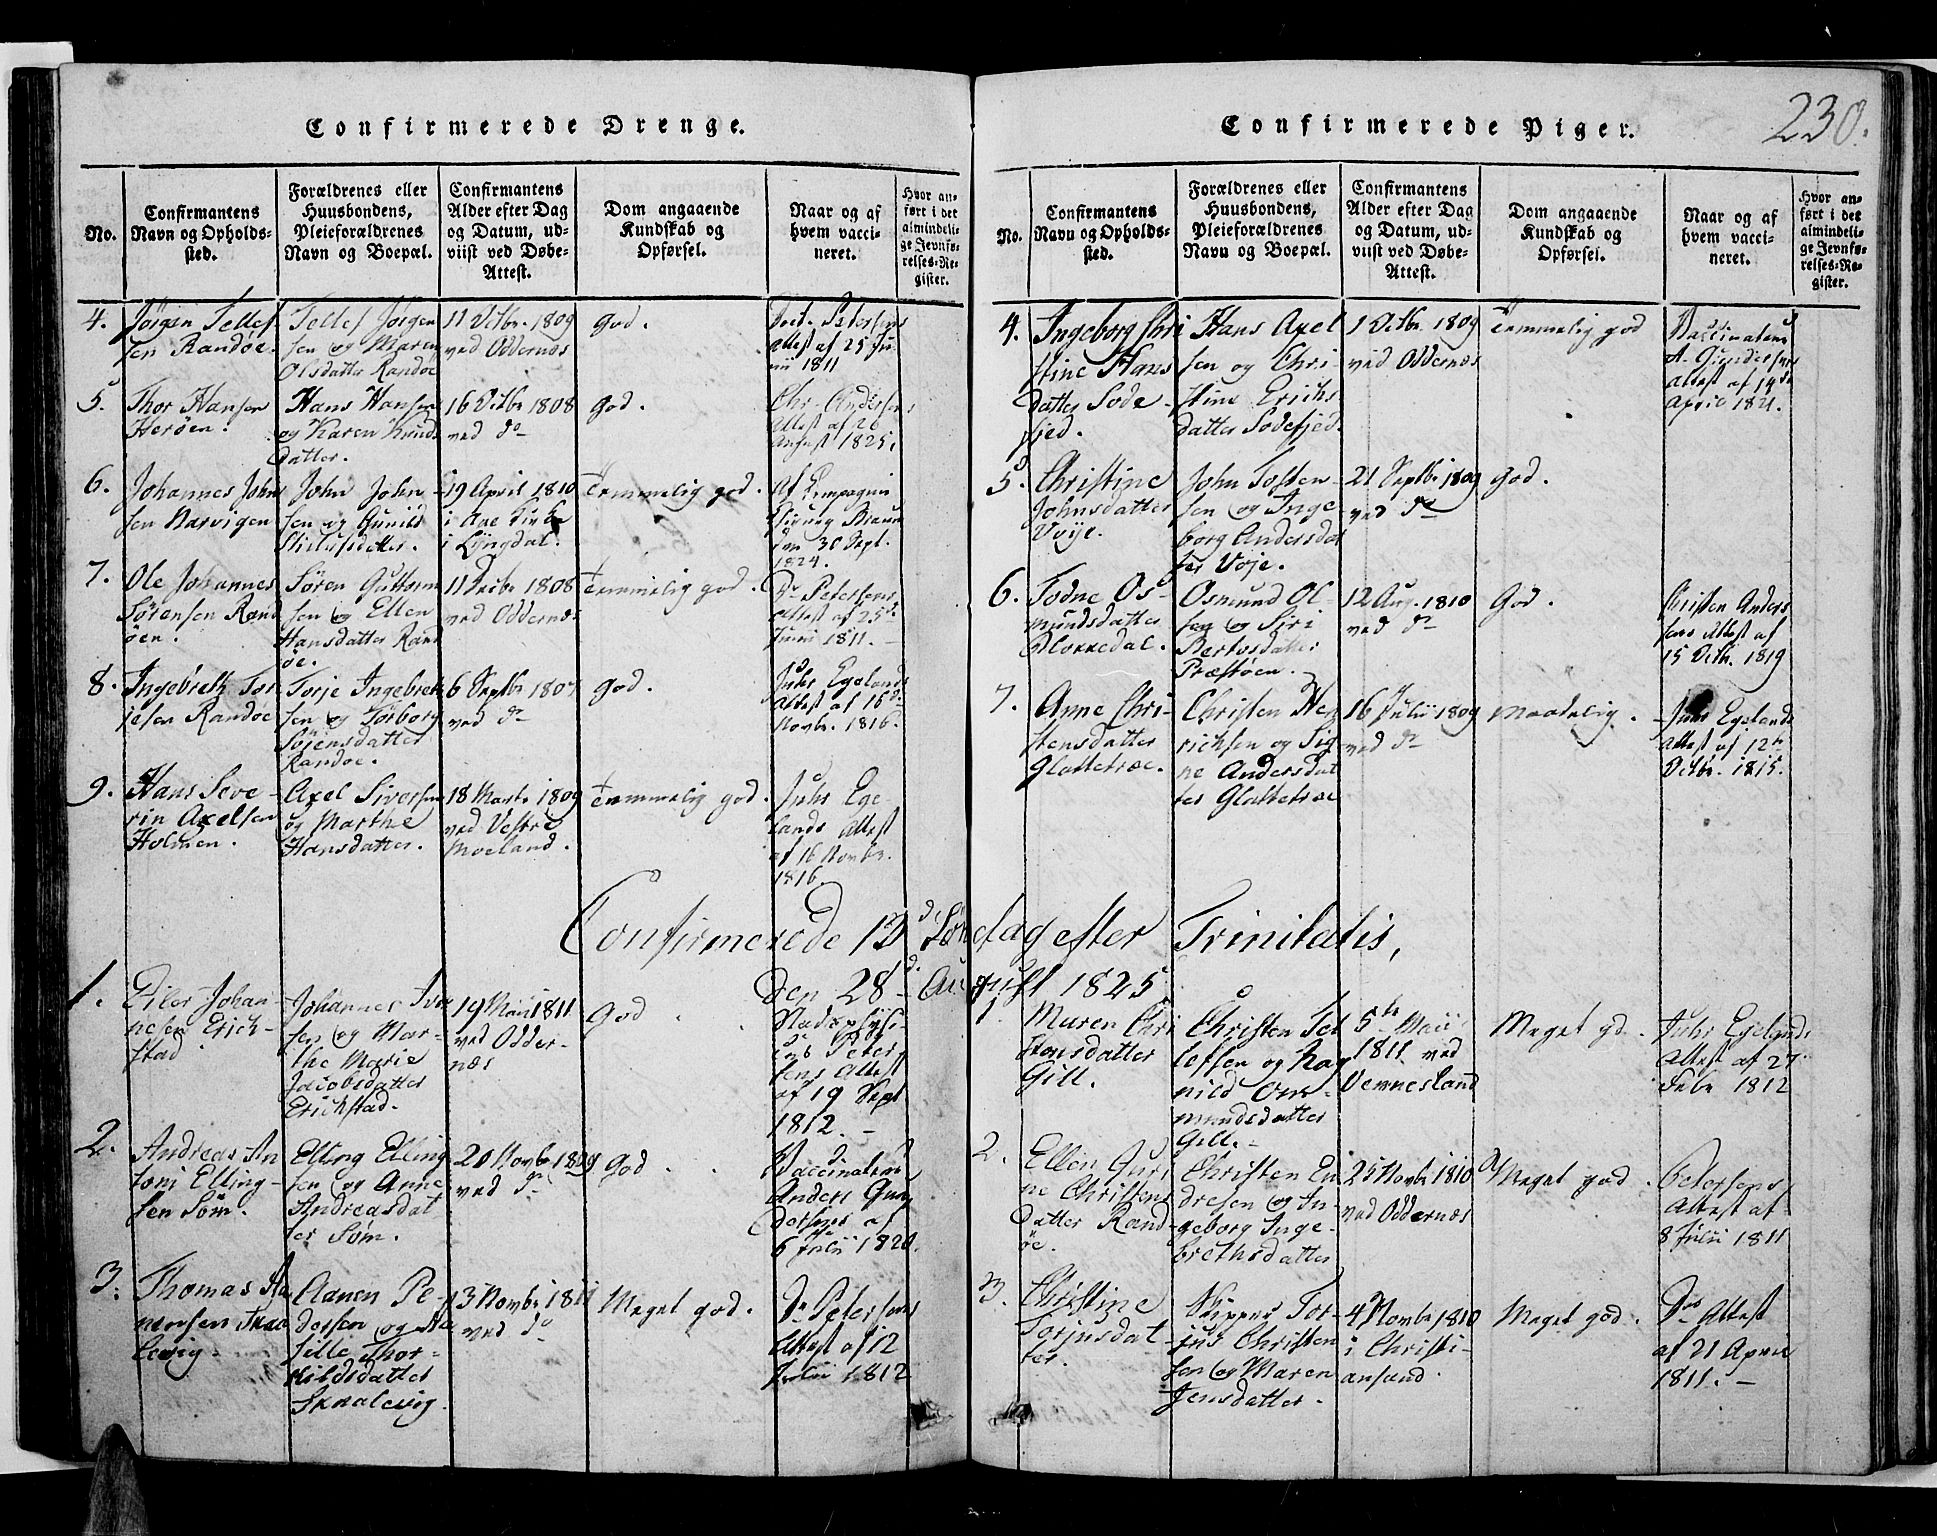 Confirmerede Drenge.
No.
Confirmantens
Navn og Opholds-
sted.
Forældrenes eller
Huusbondens,
Pleieforældrenes
Navn og Boepæl.
Confirmantens
Alder efter Dag
og Datum, ud-
viist ved Døbe-
Attest.
Dom angaaende
Kundskab og
Opførsel.
Naar og af
hvem vacci-
neret.
Hvor an-
ført i det
almindeli-
ge Jevnfø-
relses-Re-
gister.
4.
Jørgen Tellef
sen Randøe.
Tellef Jørgen
sen og Maren
Olsdatter Randøe
11 Octbr. 1809
ved Oddernæs
god.
Doct. Petersens
Attest af 25 Ju-
nii 1811
5.
Thor Hansen
Herøen.
Hans Hansen
og Karen Knuds
datter.
16 Octbr 1808
ved do
god.
Chr. Andersens
Attest af 26
August 1825.
6.
Johannes John
sen Narvigen
John John-
sen og Gunild
19 April 1810
i Aae Kirke
i Lyngdal.
Temmelig god.
Af Compagnie
den 30 Sept.
1824.
7.
Ole Johannes
Sørensen Rand
øen.
Søren Guttorm
sen og Ellen
Hansdatter Rand
øe.
11 Decbr 1808
ved Oddernæs
Temmelig god.
Dr Petersens
Attest af 25de
Junii 1811.
8.
Ingebreth Tor
jesen Randøe
Torje Ingebreth
sen og Torborg
Sørensdatter
Randøe.
6 Septbr 1807
ved do
god.
Juhr Egelands
Attest af 16de
Novbr. 1816.
9.
Hans Seve-
rin Axelsen
Holmen.
Axel Sivertsen
og Marthe
Hansdatter.
18 Marts 1809
ved Vestre
Moeland.
Temmelig god.
Juhr Ege-
lands Attest
af 16 Novbr.
1816.
Confirmerede 13d Søndag efter Trinitatis,
den 28d August 1825
1.
Eiler Johan-
nesen Erich-
stad
Johannes Iver
sen og Mar-
the Marie
Jacobsdatter
Erichstad.
19 Maii 1811
ved Odder-
næs
God
Peter-
sens Attest
af 19 Sept
1812.
2.
Andreas An
toni Elling-
sen Søm.
Elling Elling
sen og Anne
Andreasdat
ter Søm.
20 Novbr 1809
ved do
God
Vaccinateur
Anders Gun
dersens af
6 Julii 1820.
3.
Thomas Aa
nensen Skaa
levig
Aanen Pe-
dersen og Aa
sille Thor-
kildsdatter
Skaalevig.
13 Novbr 1811
ved do
Meget god.
Dr Petersens
Attest af 12
Julii 1812
Confirmerede Piger.
230.
No.
Confirmantens
Navn og Opholds-
sted.
Forældrenes eller
Huusbondens,
Pleieforældrenes
Navn og Boepæl.
Confirmantens
Alder efter Dag
og Datum, ud-
viist ved Døbe-
Attest.
Dom angaaende
Kundskab og
Opførsel.
Naar og af
hvem vacci-
neret.
Hvor an-
ført i det
almindeli-
ge Jevnfø-
relses-Re-
gister.
4.
Ingeborg Chri
stine Hans
datter Sode-
fjed.
Hans Axel
sen og Chri
stine Erichs
datter Sodefjed.
1 Octbr. 1809
ved Oddernæs
Temmelig god
Vaccinateur
A. Gundersens
Attest af 14de
April 1821.
5.
Christine
Johnsdatter
Voije.
John Tosten-
sen og Inge
borg Andersdat
ter Voje.
21 Septbr 1809
ved do
god.
6.
Todne Os-
mundsdatter
Blokkedal.
Osmund Ol-
sen og Siri
Præstøen.
12 Aug. 1810
ved do
God.
Christen Anders
sens Attest af
15 Octbr. 1819
7.
Anne Chri-
stensdatter
Glattetræe.
Christen Hen
richsen og Sig
ne Andersdat
ter Glattetræe
16 Julii 1809
ved do
Maadelig.
Juhr Egelands
Attest af 12te
Octbr. 1815.
1.
Maren Chri
stensdatter
Gill.
Christen Tel
lefsen og Rag
nild Om-
mundsdatter
Gill.
5te Maii
1811 ved
Vennesland
Meget gd.
Juhr Egelands
Attest af 27
1812
2.
Ellen Guri
ne Christens
datter Rand-
øe.
Christen En
dresen og In-
geborg Inge-
brethsdatter
25 Novbr 1810
ved Oddernæs
Meget god.
Petersens
Attest af
8 Julii 1811
3.
Christine
Torjusdat-
ter.
Skipper Tor-
jus Christen
sen og Maren
Jensdatter.
4 Novbr 1810
i Christi-
ansand.
Meget god.
Ds Attest
af 21 April
1811.